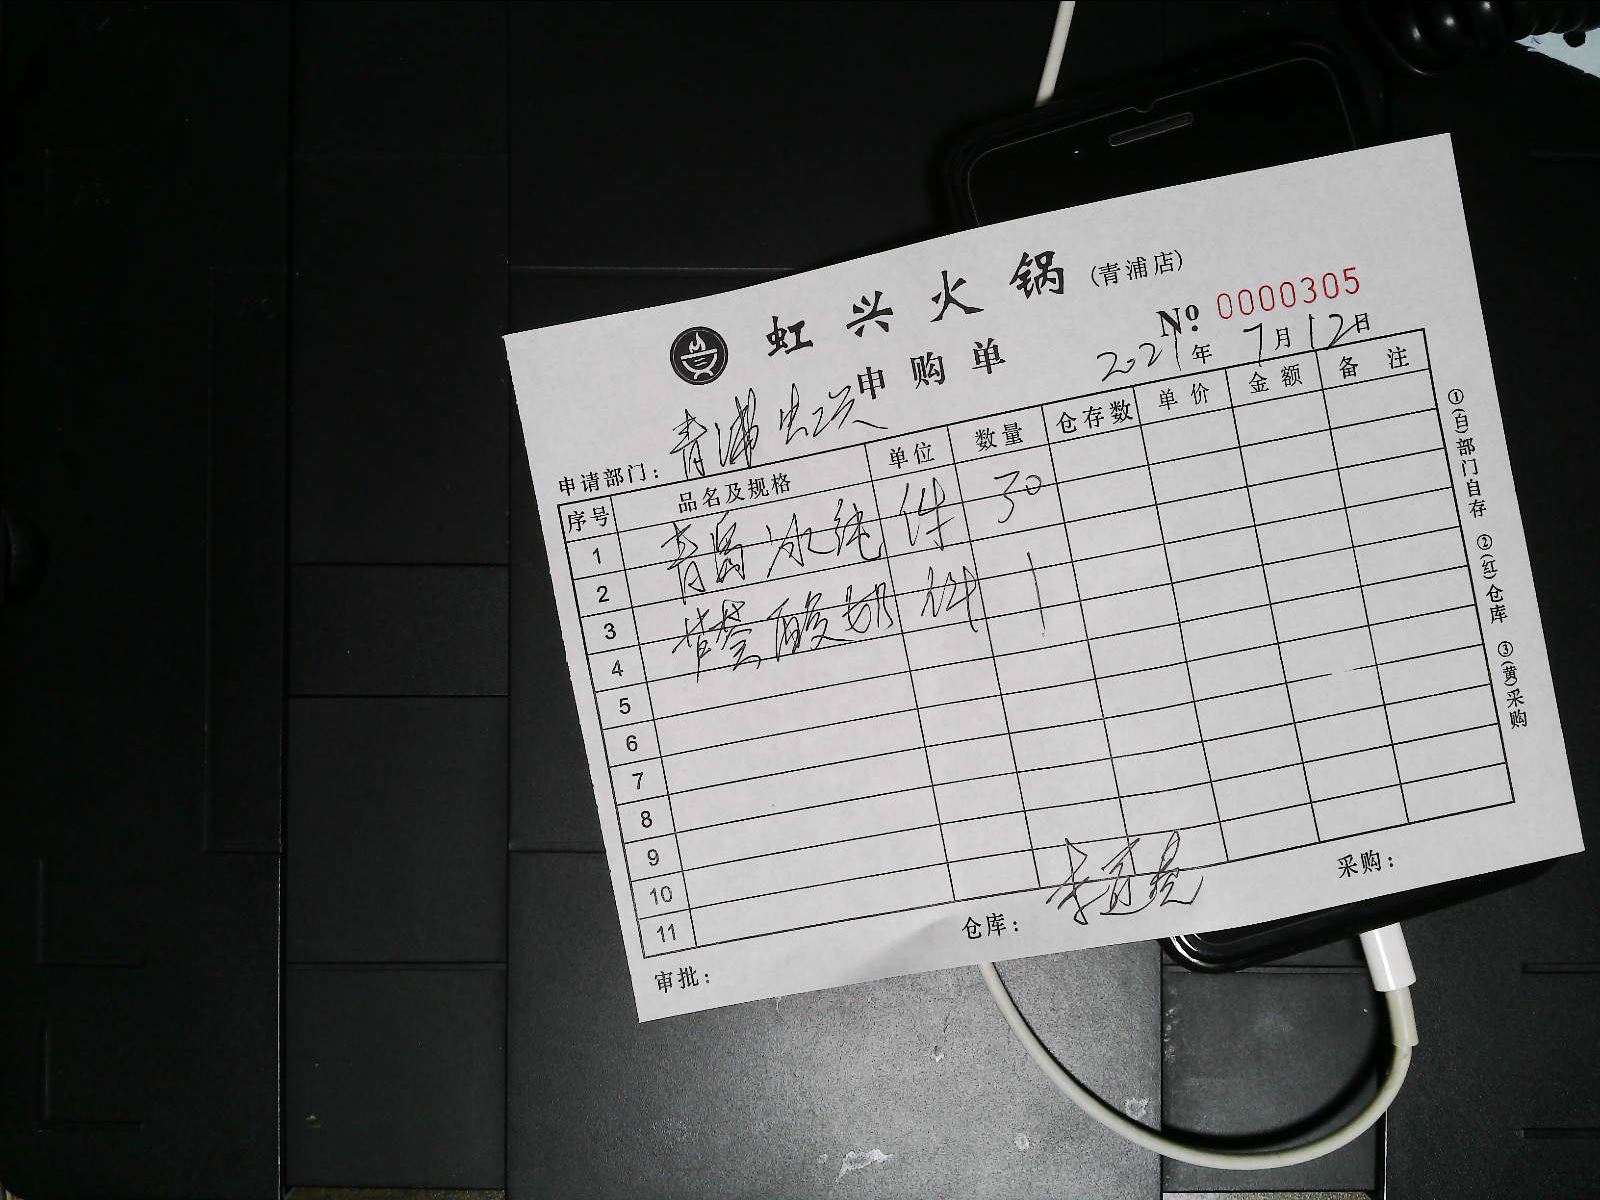 虹兴火锅(青浦店)
申购单
№ 0000305
2021年7月12日
申请部门: 青浦虹兴
序号 品名及规格 单位 数量 仓存数 单价 金额 备注
1 青岛冰纯 件 30
2
3 酸奶 件 1
4
5
6
7
8
9
10
11
审批: 仓库: 采购:
①(白)部门自存 ②(红)仓库 ③(黄)采购